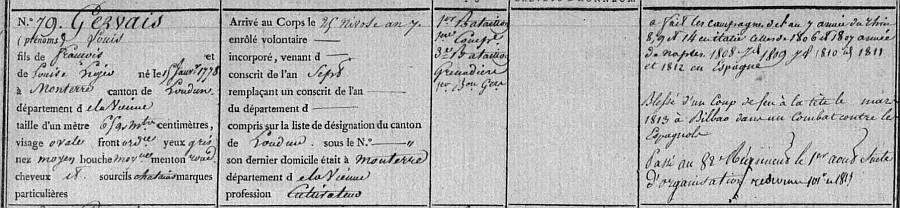 N.º 79. Gervais
(prénoms) Louis
fils de François et
de Louise Légée né le 15 Janv.er 1778
à Monterre canton de Loudun
département de la Vienne
taille d'un mètre centimètres,
visage ovale front ord.re yeux gris
nez moyen bouche moy.ne menton rond
cheveux id. sourcils chatains marques
particulières
Arrivé au Corps le 25 Nivose an 7
enrôlé volontaire —
incorporé, venant d
conscrit de l'an Sept
remplaçant un conscrit de l'an
du départment d —
compris sur la liste de désignation du canton
de Loudun sous le N.º — "
son dernier domicile était à Monterre
département de la Vienne
profession Cultivateur
1er Bataillon
Comp.e
3e Bataillon
Grenadiers
1er Bon Gers
a fait les campagnes de l'an 7 armée du Rhin
8, 9 et 14 en italie celles de 1806 et 1807 armée
de naples, 1808 1809 1810 1811
et 1812 en Espagne
Blessé d'un Coup de feu à la tête le mar
1813 à Bilbao dans un combat contre les
Espagnols
Passé au 82e Régiment le 1er aout Suite
d'organisation